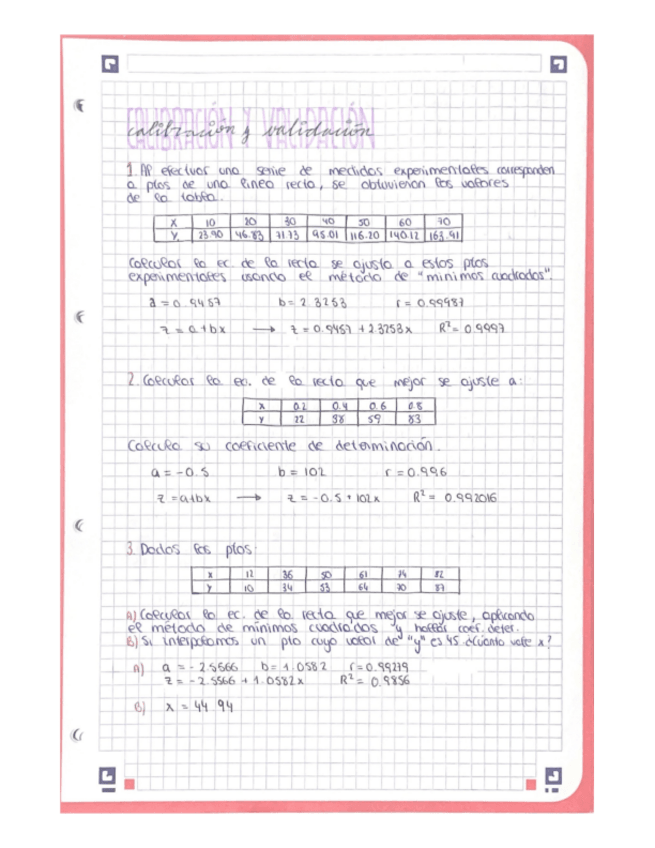 CALIBRACIÓN Y VALIDACIÓN
calibración y validación
1. Al efectuar una serie de medidas experimentales corresponden
a ptos de una línea recta, se obtuvieron los valores
de la tabla.
x 10 20 30 40 50 60 70
y 23.90 46.83 71.73 95.01 116.20 140.12 163.91
Calcular la ec. de la recta se ajusta a estos ptos
experimentales usando el método de "mínimos cuadrados".
a = 0.9457 b = 2.3253 r = 0.99987
z = a + bx → z = 0.9457 + 2.3253x R² = 0.9997
2. Calcular la ec. de la recta que mejor se ajuste a:
x 0.2 0.4 0.6 0.8
y 22 38 59 83
Calcula su coeficiente de determinación.
a = -0.5 b = 102 r = 0.996
z = a+bx → z = -0.5 + 102x R² = 0.992016
3. Dados los ptos:
x 12 36 50 61 74 82
y 10 34 53 64 70 87
A) Calcular la ec. de la recta que mejor se ajuste, aplicando
el método de mínimos cuadrados y hallar coef. deter.
B) Si interpolamos un pto cuyo valor de "y" es 45 ¿Cuánto vale x?
A) a = -2.5566 b = 1.0582 r = 0.99279
z = -2.5566 + 1.0582x R² = 0.9856
B) x = 44.94